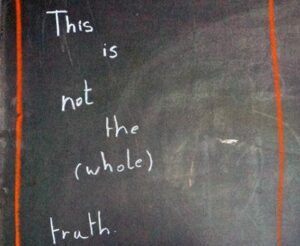 This
is
not
the
(whole)
truth.